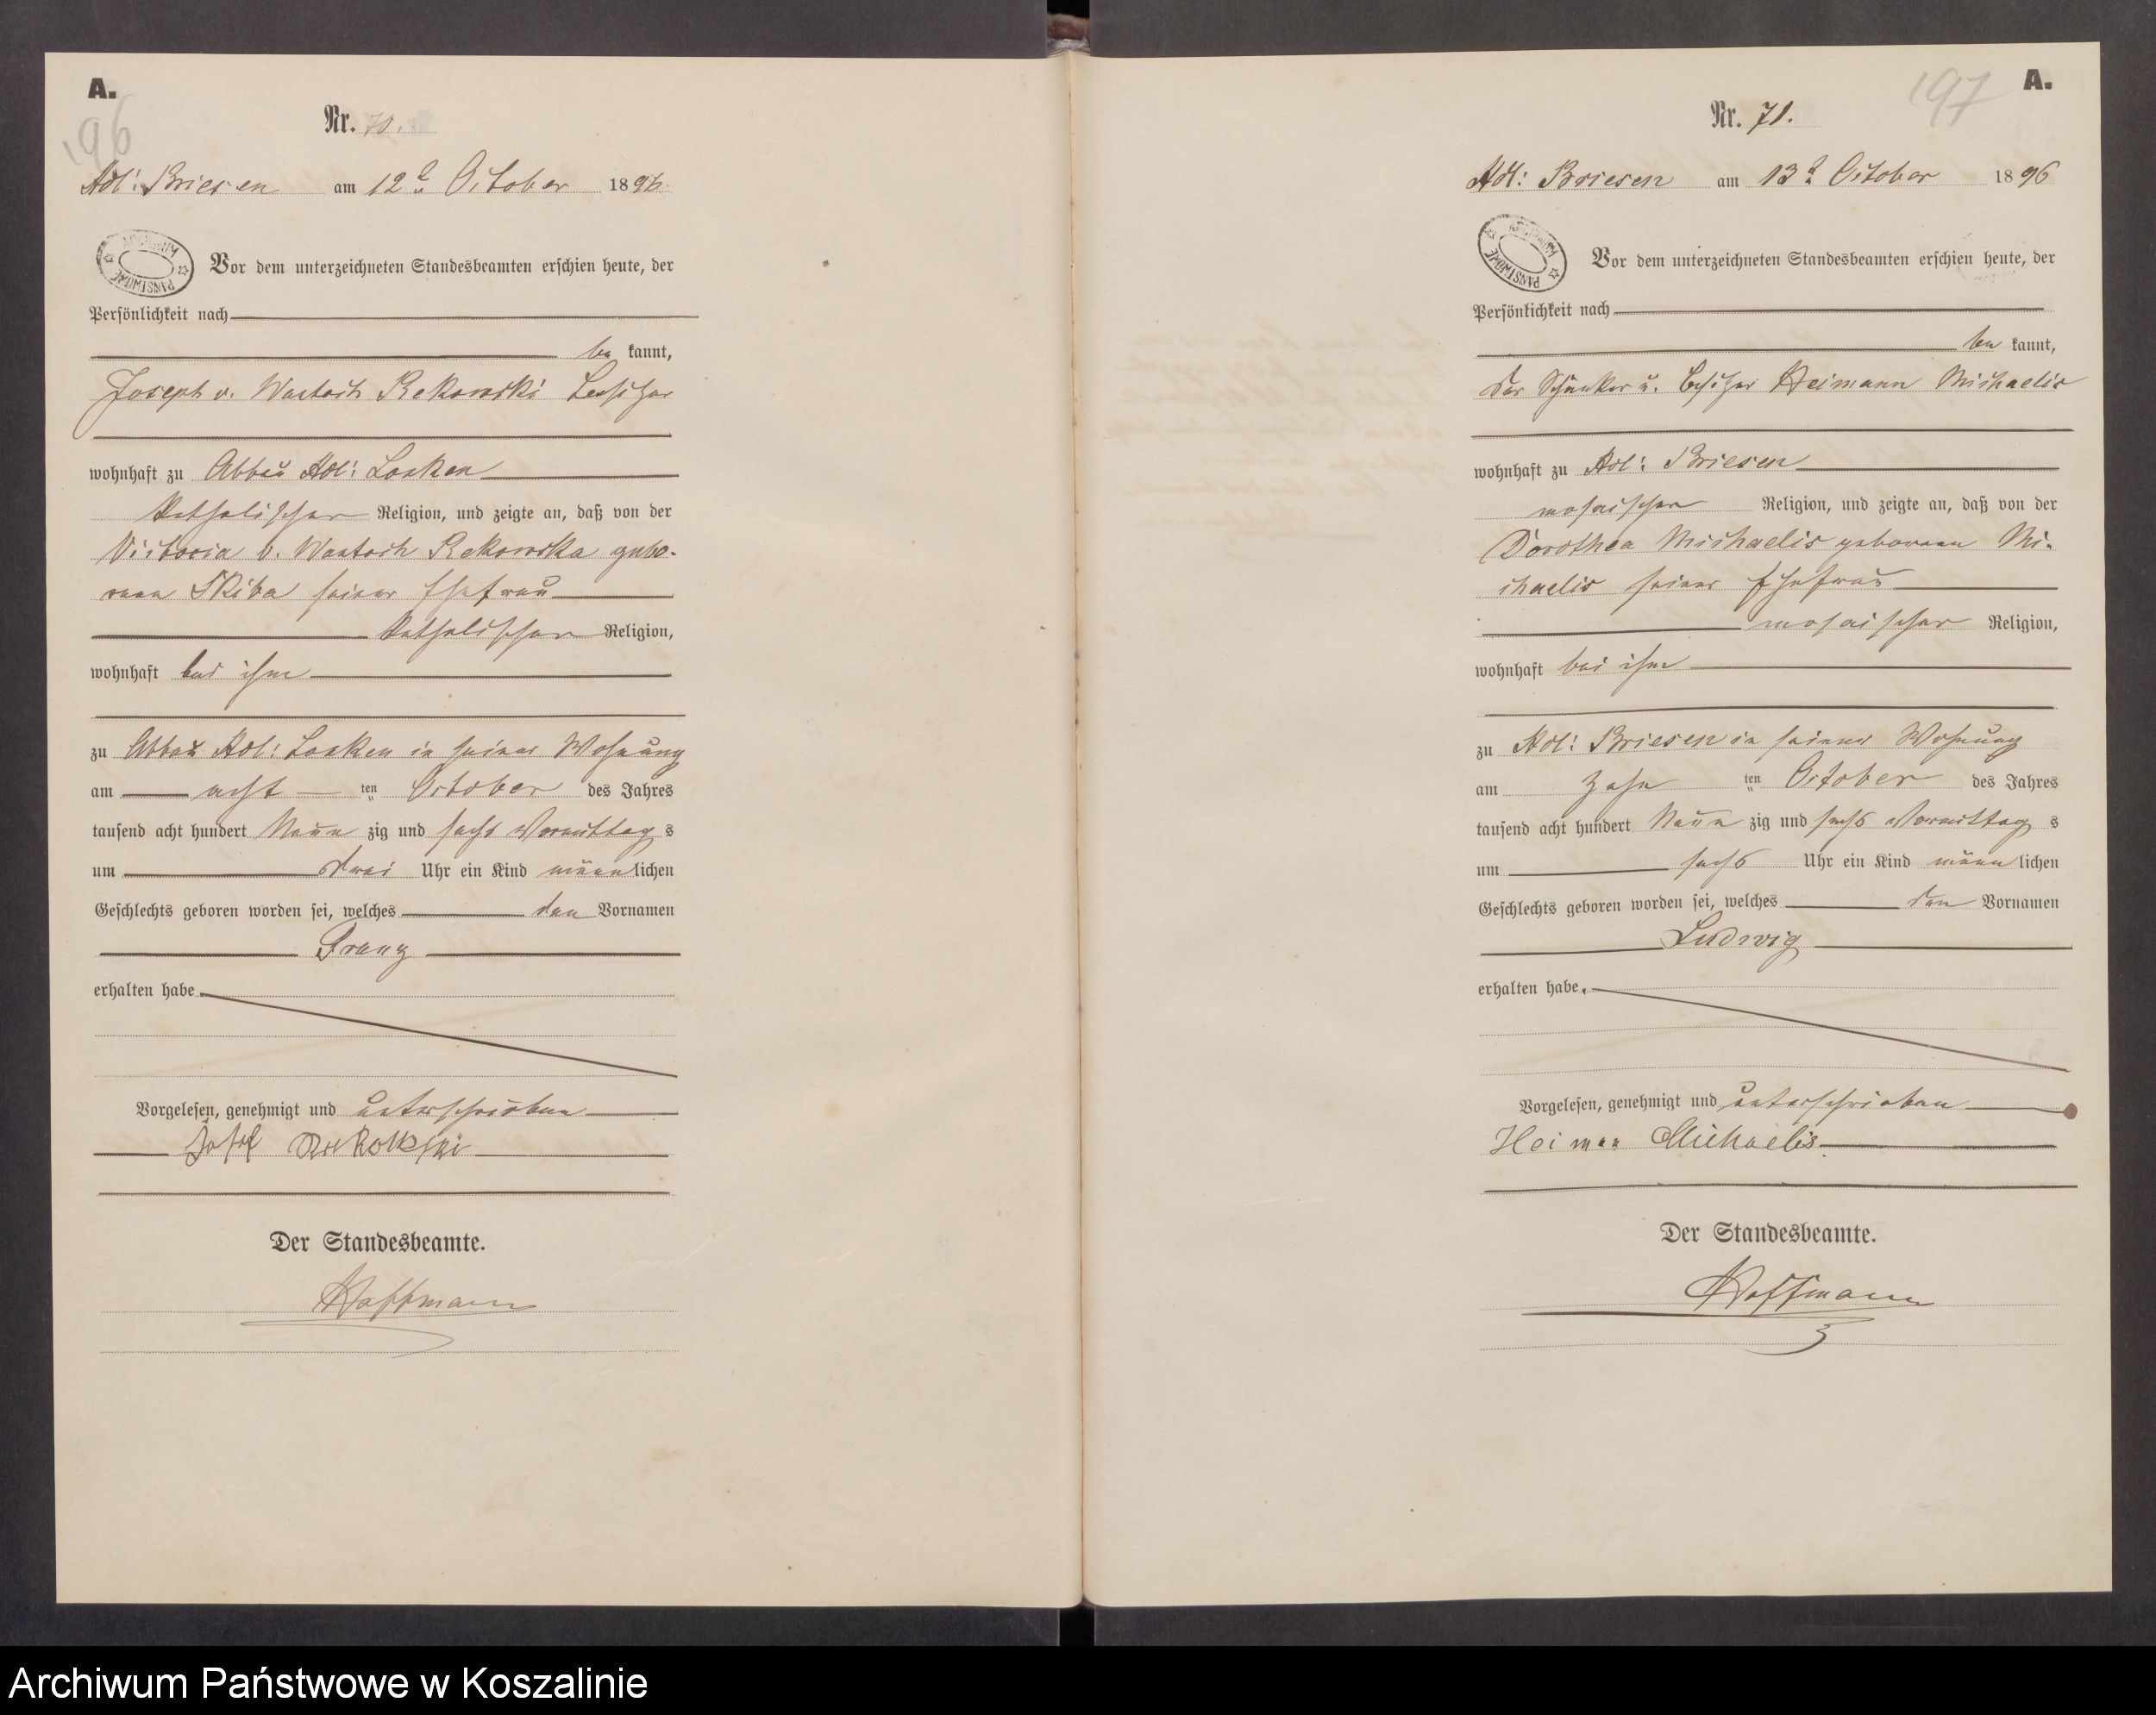 A.
196
Nr. 70.
Adl: Briesen am 12t October 1896.
ARCHIWUM PAŃSTWOWE
Vor dem unterzeichneten Standesbeamten erschien heute, der
Persönlichkeit nach
be kannt,
Joseph v. Wantoch Rekowski Besitzer
wohnhaft zu Abbau Adl: Lonken
katholischer Religion, und zeigte an, daß von der
Victoria v. Wantoch Rekowska gebo-
rene Skiba seiner Ehefrau
katholischer Religion,
wohnhaft bei ihm
zu Abbau Adl: Lonken in seiner Wohnung
am acht ten October des Jahres
tausend acht hundert Neun zig und sechs Vormittag s
um drei Uhr ein Kind männlichen
Geschlechts geboren worden sei, welches den Vornamen
Franz
erhalten habe
Vorgelesen, genehmigt und unterschrieben
Josef Rekowski
Der Standesbeamte.
Hoffmann
A.
197
Nr. 71.
Adl: Briesen am 13t October 1896
ARCHIWUM PAŃSTWOWE
Vor dem unterzeichneten Standesbeamten erschien heute, der
Persönlichkeit nach
be kannt,
der Schänker u. Besitzer Heimann Michaelis
wohnhaft zu Adl: Briesen
mosaischer Religion, und zeigte an, daß von der
Dorothea Michaelis geborene Mi-
chaelis seiner Ehefrau
mosaischer Religion,
wohnhaft bei ihm
zu Adl: Briesen in seiner Wohnung
am zehn ten October des Jahres
tausend acht hundert Neun zig und sechs Vormittag s
um sechs Uhr ein Kind männlichen
Geschlechts geboren worden sei, welches den Vornamen
Ludwig
erhalten habe.
Vorgelesen, genehmigt und unterschrieben
Heiman Michaelis.
Der Standesbeamte.
Hoffmann
Archiwum Państwowe w Koszalinie